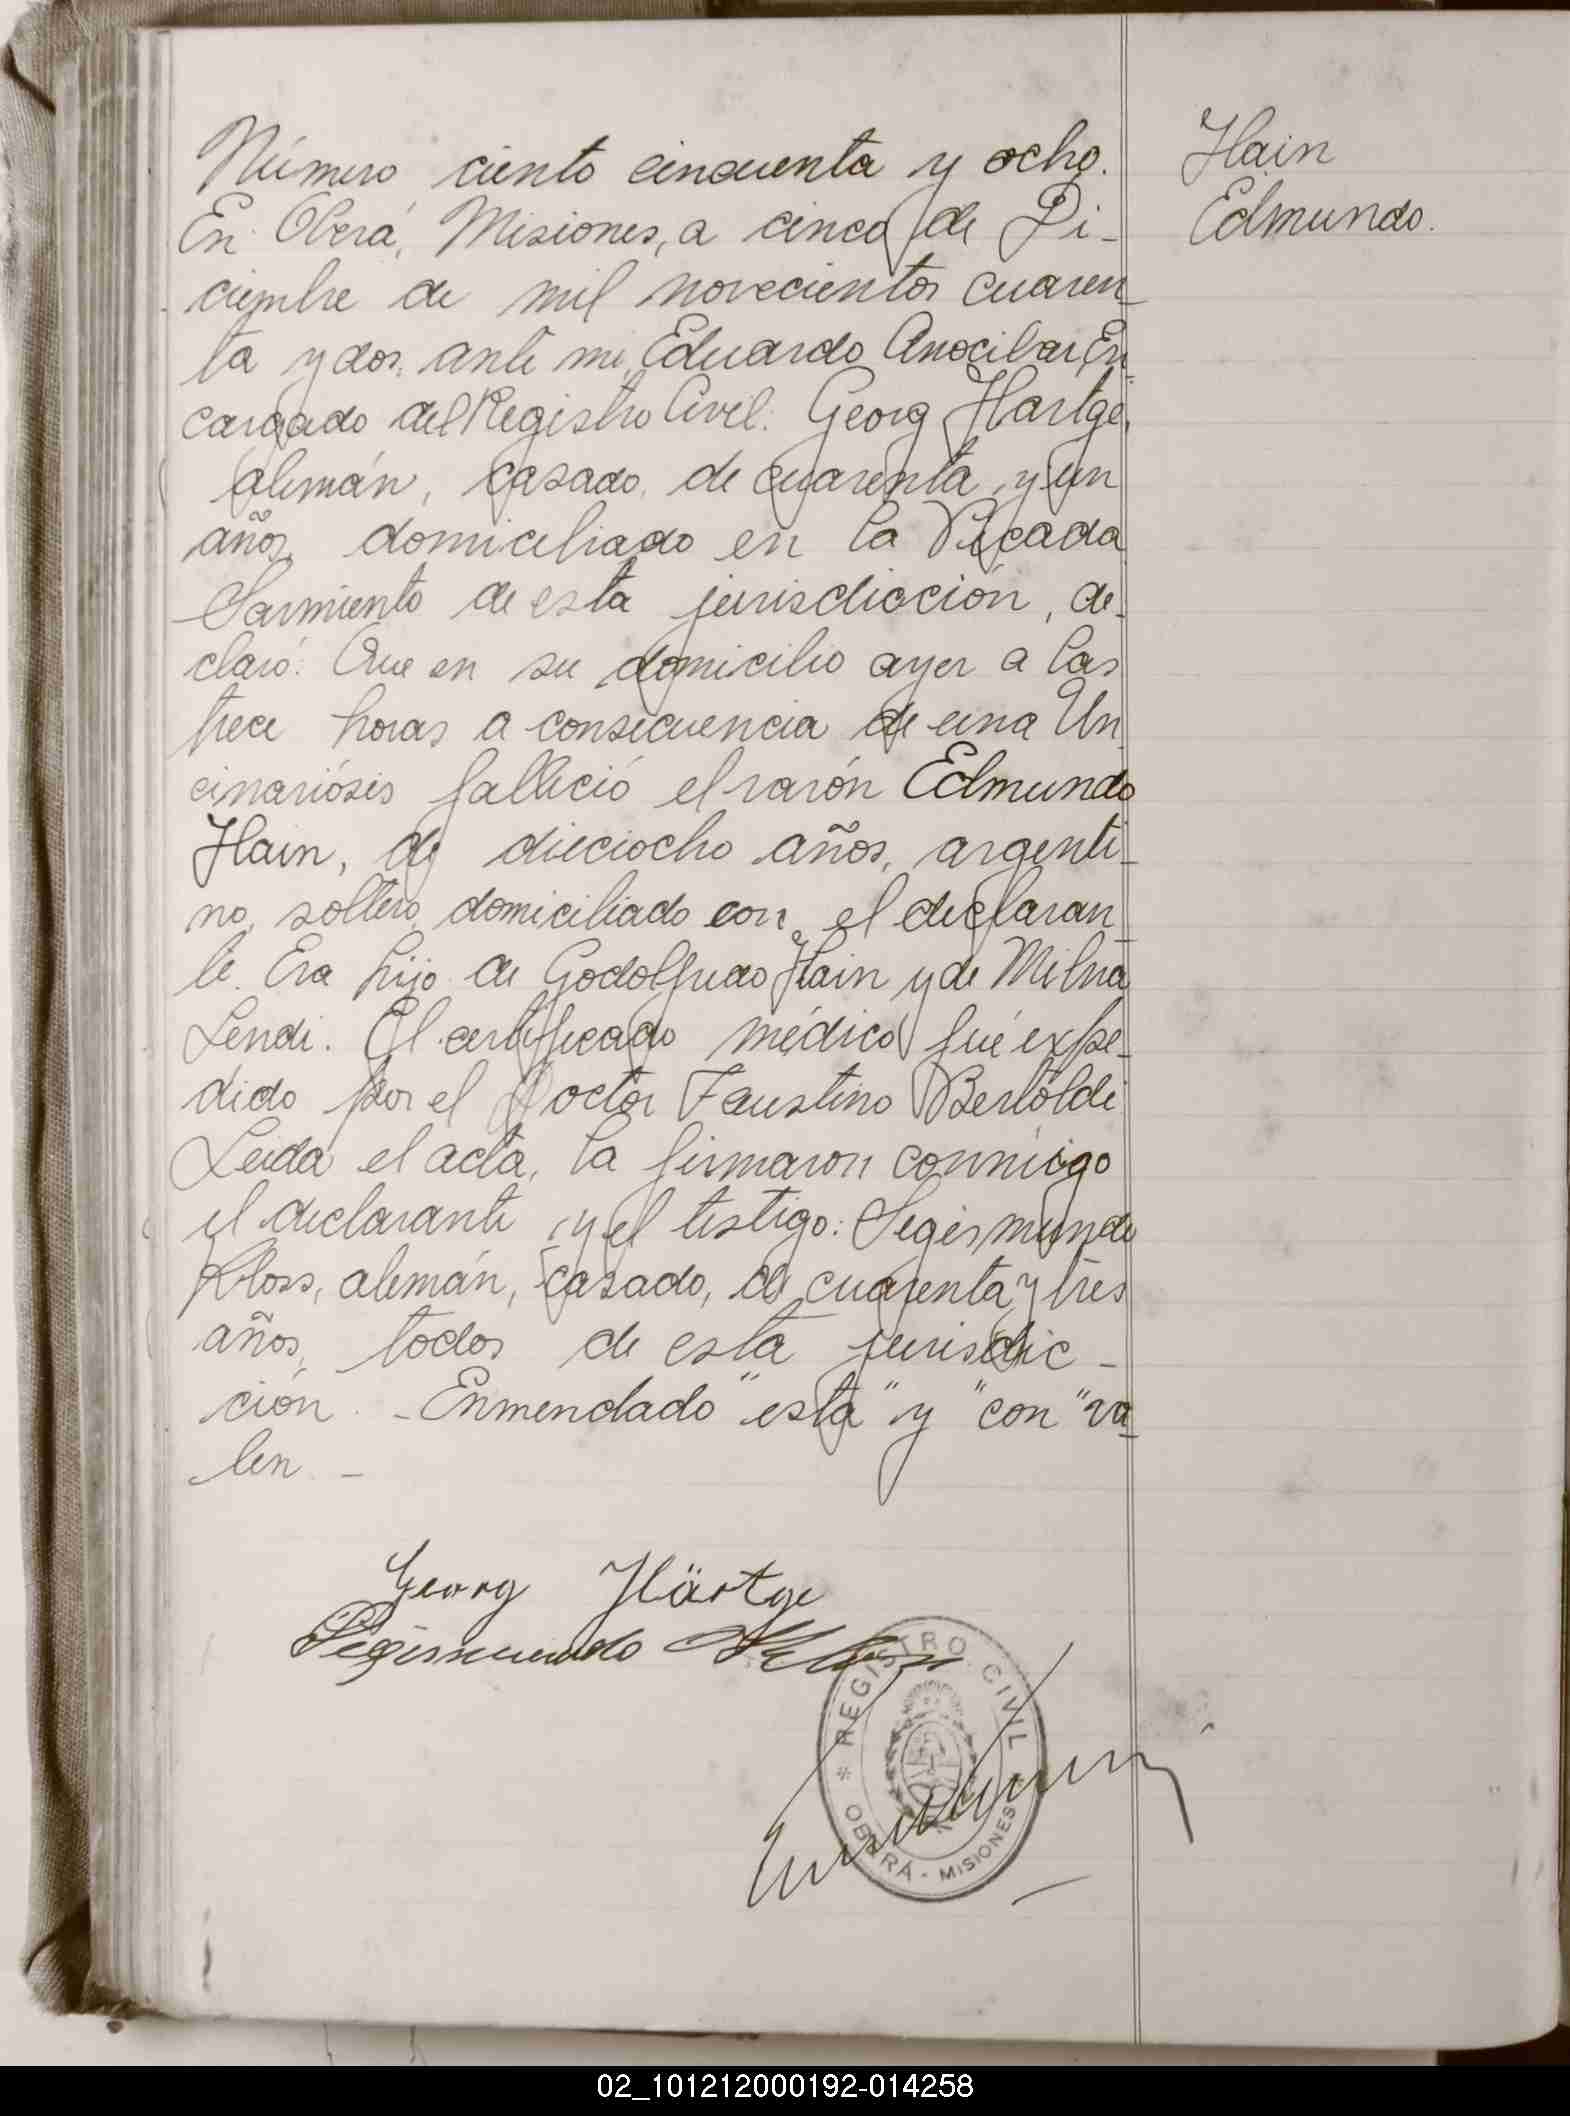 Número ciento cincuenta y ocho.
En Oberá, Misiones, a cinco de Di-
ciembre de mil novecientos cuaren-
ta y dos, ante mi, Eduardo Anocibar, En-
cargado del Registro Civil: Georg Hartge,
alemán, casado, de cuarenta y un
años, domiciliado en la Picada
Sarmiento de esta jurisdicción, de-
claró: Que en su domicilio ayer a las
trece horas a consecuencia de una Un-
cinariósis falleció el varón Edmundo
Hain, de dieciocho años, argenti-
no, soltero, domiciliado con el declaran-
te. Era hijo de Godolfredo Hain y de
Lendi. El certificado médico fué expe-
dido por el Doctor Faustino Bertoldi
Leida el acta, la firmaron conmigo
el declarante y el testigo: Segismundo
Kloss, alemán, casado, de cuarenta y tres
años, todos de esta jurisdic-
ción. - Enmendado "esta" y "con" va-
len. -
Hain
Edmundo.
Georg Härtge
Segismundo
REGISTRO CIVIL
* OBERÁ - MISIONES *
02_101212000192-014258